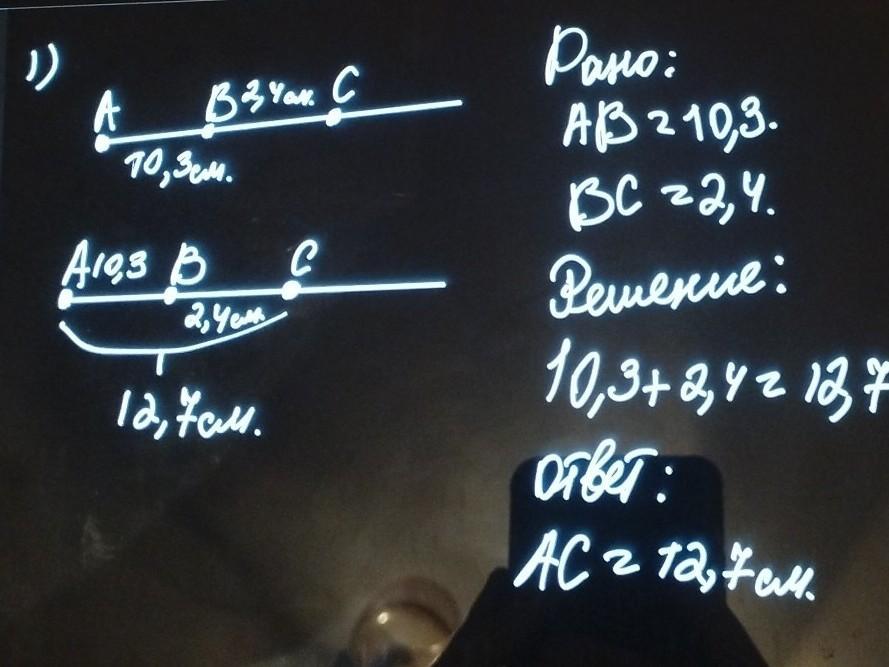 1)
A B 2,4см. C
10,3см.
A 10,3 B C
2,4см.
12,7см.
Дано:
AB = 10,3.
BC = 2,4.
Решение:
10,3 + 2,4 = 12,7
Ответ:
AC = 12,7см.